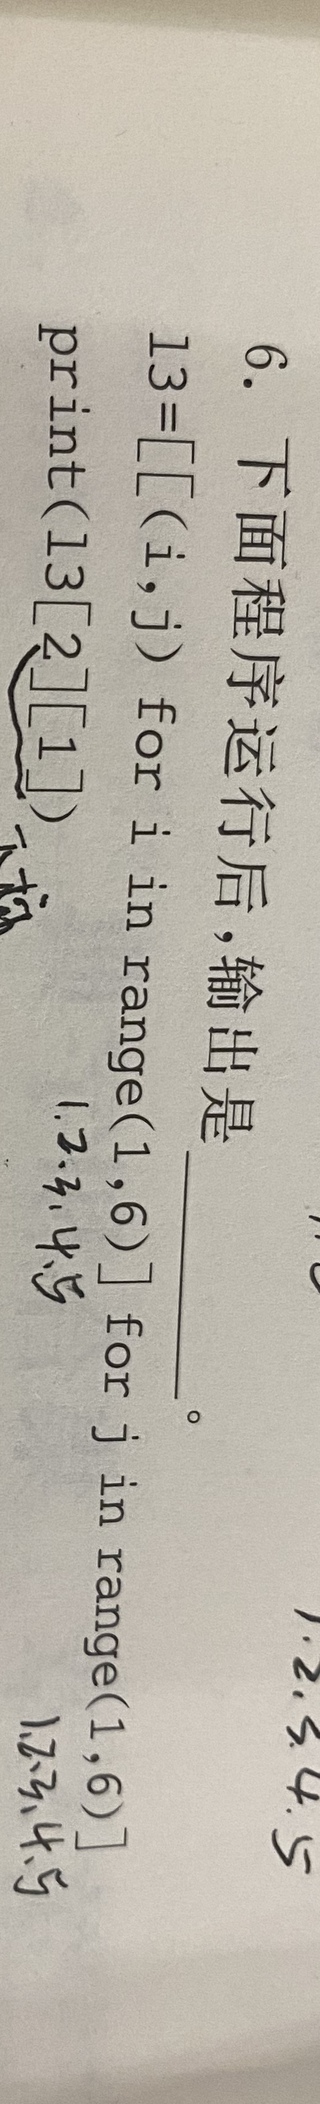 6. 下面程序运行后,输出是________。
l3=[[(i,j) for i in range(1,6)] for j in range(1,6)]
print(l3[2][1])
1.2.3.4.5
1.2.3.4.5
1.2.3.4.5